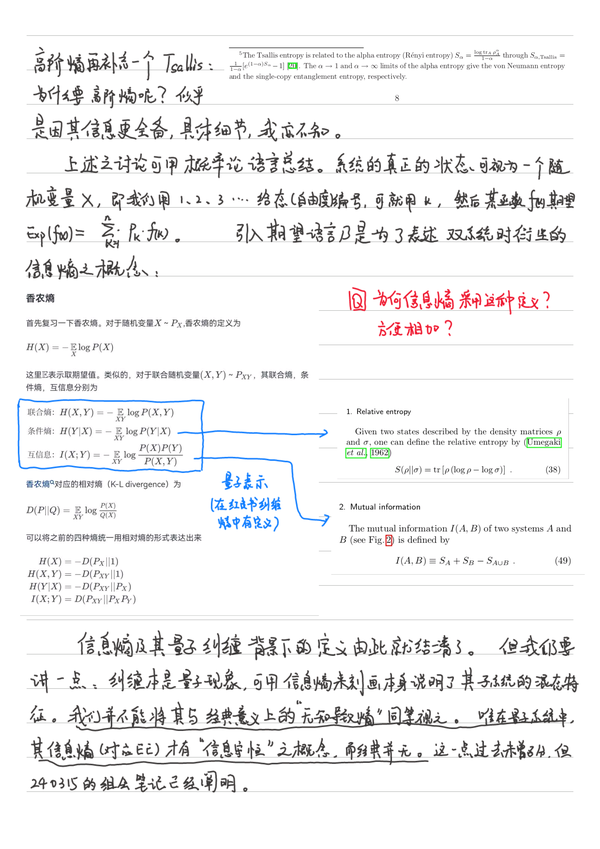 高阶熵再补充一个 Tsallis:
⁵The Tsallis entropy is related to the alpha entropy (Rényi entropy) Sα = log trA ρA^α / (1−α) through Sα,Tsallis =
1/(1−α) [e^((1−α)Sα) −1] [20]. The α → 1 and α → ∞ limits of the alpha entropy give the von Neumann entropy
and the single-copy entanglement entropy, respectively.
8
为什么要高阶熵呢? 似乎
是因其信息更全备,具体细节,我亦不知。
上述之讨论可用概率论语言总结。系统的真正的状态、可视为一个随
机变量 X, 即我们用 1、2、3 ⋯ 给态(自由度)编号, 可就用 k, 然后某函数 f(x)期望
Exp(f(x)) = Σ Pk·f(k)。 引入期望语言乃是为了表述 双系统时衍生的
信息熵之概念:
香农熵
首先复习一下香农熵。对于随机变量X ~ PX,香农熵的定义为
H(X) = − 𝔼X log P(X)
这里𝔼表示取期望值。类似的,对于联合随机变量(X, Y) ~ PXY,其联合熵,条
件熵,互信息分别为
联合熵: H(X, Y) = − 𝔼XY log P(X, Y)
条件熵: H(Y|X) = − 𝔼XY log P(Y|X)
互信息: I(X; Y) = − 𝔼XY log P(X)P(Y) / P(X, Y)
香农熵对应的相对熵(K-L divergence)为
D(P||Q) = 𝔼XY log P(X) / Q(X)
可以将之前的四种熵统一用相对熵的形式表达出来
H(X) = −D(PX||1)
H(X, Y) = −D(PXY||1)
H(Y|X) = −D(PXY||PX)
I(X; Y) = D(PXY||PXPY)
Q 为何信息熵采用这种定义?
方便相加?
量子表示
(在红皮书纠缠
熵中有定义)
1. Relative entropy
Given two states described by the density matrices ρ
and σ, one can define the relative entropy by (Umegaki
et al., 1962)
S(ρ||σ) = tr [ρ (log ρ − log σ)] . (38)
2. Mutual information
The mutual information I(A, B) of two systems A and
B (see Fig. 2) is defined by
I(A, B) ≡ SA + SB − SA∪B . (49)
信息熵及其量子纠缠背景下的定义由此就结清了。 但我们要
讲一点: 纠缠本是量子现象, 可用信息熵来刻画本身说明了其子系统的混态特
征。我们并不能将其与经典意义上的“无知导致熵”同等视之。唯在量子系统中,
其信息熵(对应EE)才有“信息守恒”之概念, 而经典并无。这一点过去未曾区分, 但
240315的组会笔记已经阐明。